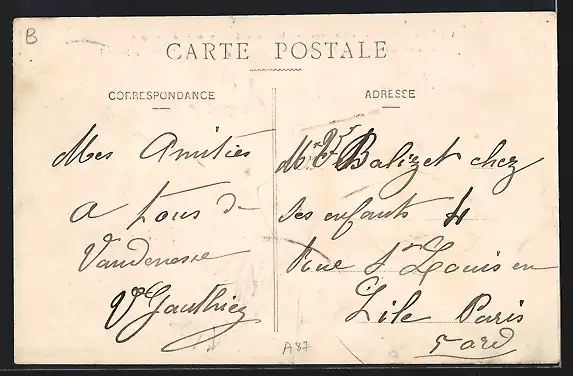 B
CARTE POSTALE
CORRESPONDANCE
Mes Amities
a tous de
Vandenesse
Ve Gauthiez
ADRESSE
Balizet chez
ses enfants 4
Rue St Louis en
L'ile Paris
A87